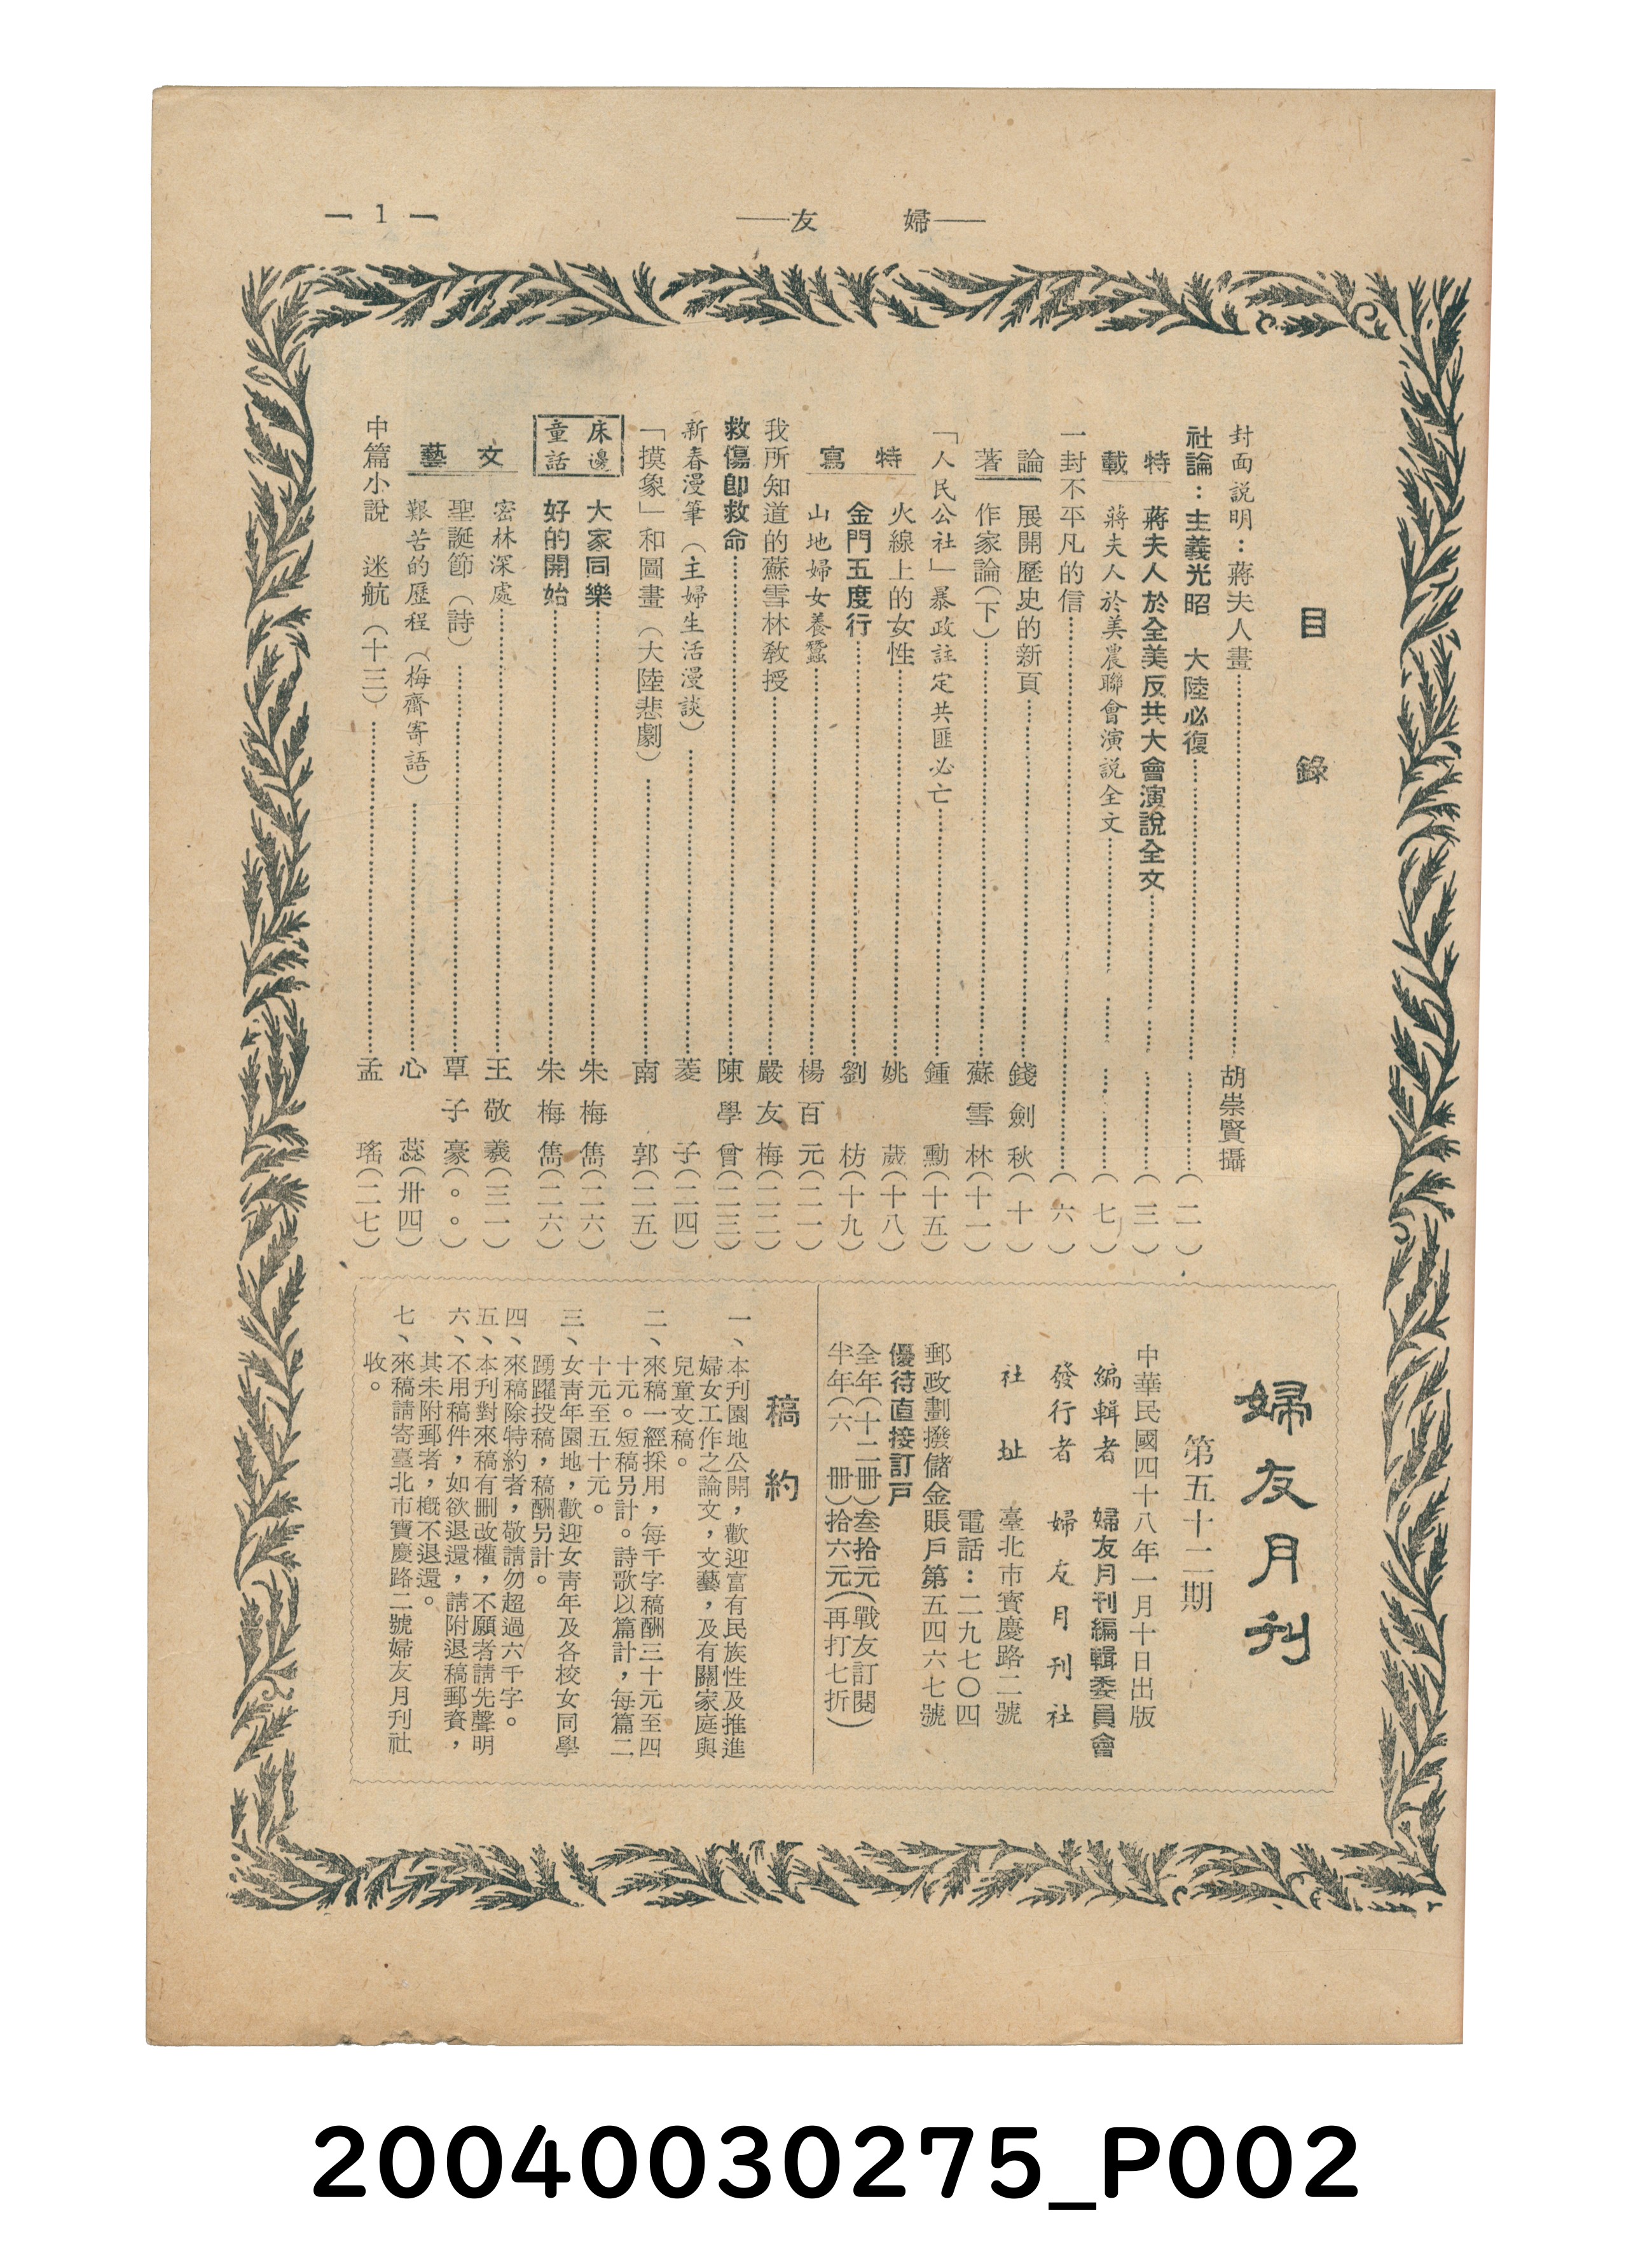 — 1 —
——婦 友——
目 錄
封面説明:蔣夫人畫……胡崇賢攝
社論:主義光昭 大陸必復……(二)
特載
蔣夫人於全美反共大會演說全文……(三)
蔣夫人於美農聯會演説全文……(七)
一封不平凡的信……(六)
論著
展開歷史的新頁……錢劍秋(十)
作家論(下)……蘇雪林(十一)
「人民公社」暴政註定共匪必亡……鍾勳(十五)
特寫
火線上的女性……姚葳(十八)
金門五度行……劉枋(十九)
山地婦女養蠶……楊百元(二一)
我所知道的蘇雪林教授……嚴友梅(二二)
救傷卽救命……陳學曾(二三)
新春漫筆(主婦生活漫談)……菱子(二四)
「摸象」和圖畫(大陸悲劇)……南郭(二五)
床邊童話
大家同樂……朱梅雋(二六)
好的開始……朱梅雋(二六)
文藝
密林深處……王敬羲(三一)
聖誕節(詩)……覃子豪(。。)
艱苦的歷程(梅齋寄語)……心蕊(卅四)
中篇小說 迷航(十三)……孟瑤(二七)
婦友月刊
第五十二期
中華民國四十八年一月十日出版
編輯者 婦友月刊編輯委員會
發行者 婦友月刊社
社址 臺北市寶慶路二號
電話:二九七〇四
郵政劃撥儲金賬戶第五四六七號
優待直接訂戶
全年(十二冊)叁拾元(戰友訂閱
半年(六 冊)拾六元(再打七折)
稿約
一、本刊園地公開,歡迎富有民族性及推進
婦女工作之論文,文藝,及有關家庭與
兒童文稿。
二、來稿一經採用,每千字稿酬三十元至四
十元。短稿另計。詩歌以篇計,每篇二
十元至五十元。
三、女靑年園地,歡迎女靑年及各校女同學
踴躍投稿,稿酬另計。
四、來稿除特約者,敬請勿超過六千字。
五、本刊對來稿有刪改權,不願者請先聲明
六、不用稿件,如欲退還,請附退稿郵資,
其未附郵者,槪不退還。
七、來稿請寄臺北市寶慶路二號婦友月刊社
收。
20040030275_P002